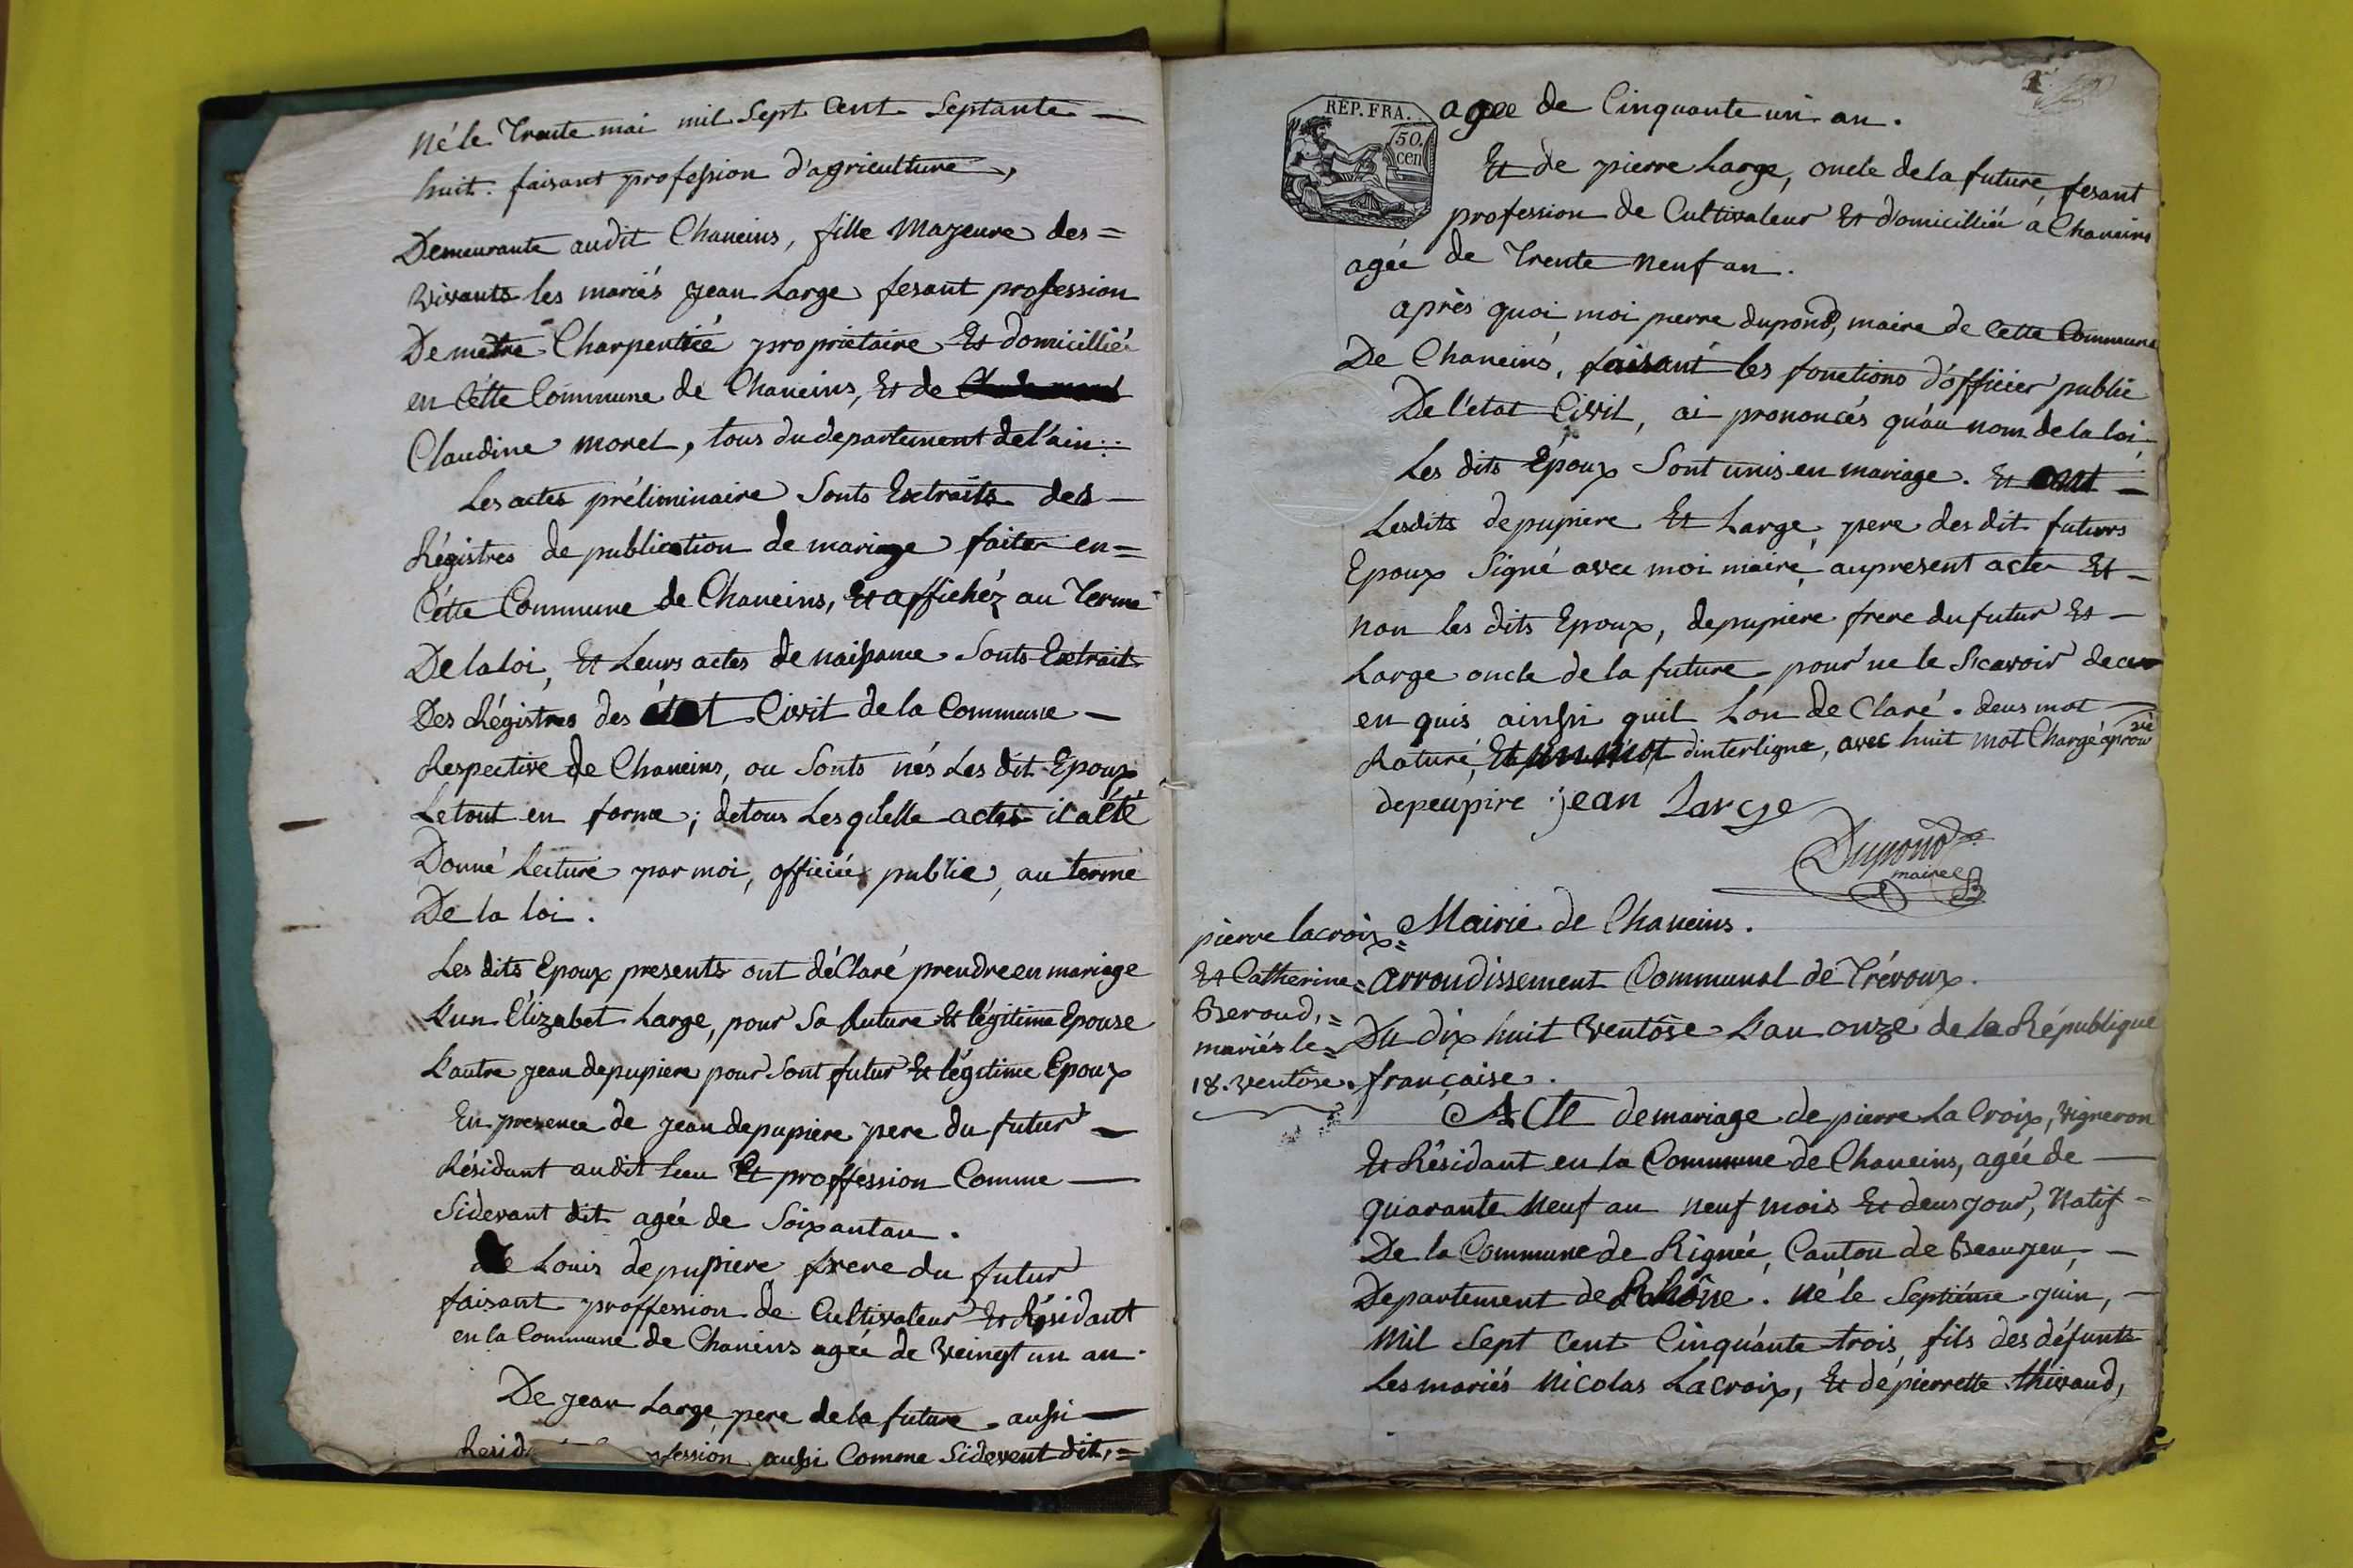 Né le Trente mai mil Sept Cent Septante —
huit. faisant profession d'agriculture,
Demeurante audit Chaneins, fille Majeure des=
Vivants les mariés jean Large fesant profession
De metre Charpentié proprietaire Et domicillié
en Cétte Commune de Chaneins, Et de
Claudine Morel, tous du departement de l'ain:
Les actes préliminaire Sonts Extraits des —
Régistres de publication de mariage faite en=
Cétte Commune de Chaneins, Et affichéz au Terme
De la loi, Et Leurs actes de naissance Sonts Extrait
Des Régistres des état Civil de la Commune —
Respective de Chaneins, ou Sonts nés Les dit Epoux
Le tout en forme; de tous Les qu'elle actes il a été
Donné Lecture par moi, officié public, au terme
De la loi.
Les dits Epoux presents ont déClaré prendre en mariage
L'un Elizabet Large, pour Sa future Et légitime Epouse
L'autre jean depupiere pour Sont futur Et légitime Epoux
En presence de jean depupiere pere du futur —
Résidant audit lieu Et proffession Comme —
Sidevant dit agée de Soixantan.
De Louis depupiere frere du futur
faisant proffession de Cultivateur Et Résidant
en la Commune de Chaneins agée de Veingt un an.
De jean Large pere de la future aussi —
Resid fession aussi Comme Sidevent dit,=
REP. FRA.
50 cen
agee de Cinquante un an.
Et de pierre Large, oncle de la future, fesant
profession de Cultivateur Et domicillié a Chaneins
agée de Trente Neuf an.
après quoi moi pierre dupond, maire de Cette Commune
De Chaneins, faisant les fonctions d'officier public
De l'état Civil, ai prononcés qu'au nom de la loi,
Les dits Epoux Sont unis en mariage. Et ont —
Lesdits depupiere Et Large, pere des dit futurs
Epoux Signé avec moi maire, au present acte Et —
non les dits Epoux, depupiere frere du futur Et —
Large oncle de la future pour ne le Scavoir de ce
en quis ainssi quil Lon de Claré. deus mot —
Raturé, Et un mot d'interligne, avec huit mot Chargé aprouvé
depeupire jean Large
Dupond
maire
pierre lacroix=
Et Catherine=
Beroud,=
mariés le=
18. ventôse.
Mairie de Chaneins.
arrondissement Communal de Trévoux.
Du dix huit Ventôse L'an onze de la République
française.
ACTE de mariage de pierre La Croix, vigneron
Et Résidant en la Commune de Chaneins, agée de —
quarante Neuf an neuf mois Et deus jour, Natif=
De la Commune de Rignée, Canton de Beaujeu, —
Departement de Rhône. né le Septiéme juin, —
Mil Sept Cent Cinquante trois, fils des défunts
Les mariés Nicolas Lacroix, Et de pierrette thivaud,